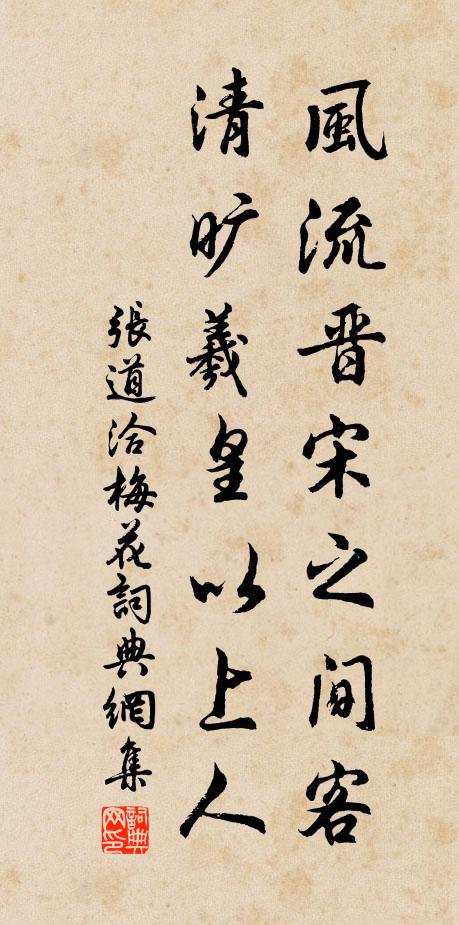 風流晋宋之间客
清旷羲皇以上人
張道洽梅花詞典網集
詞典网印